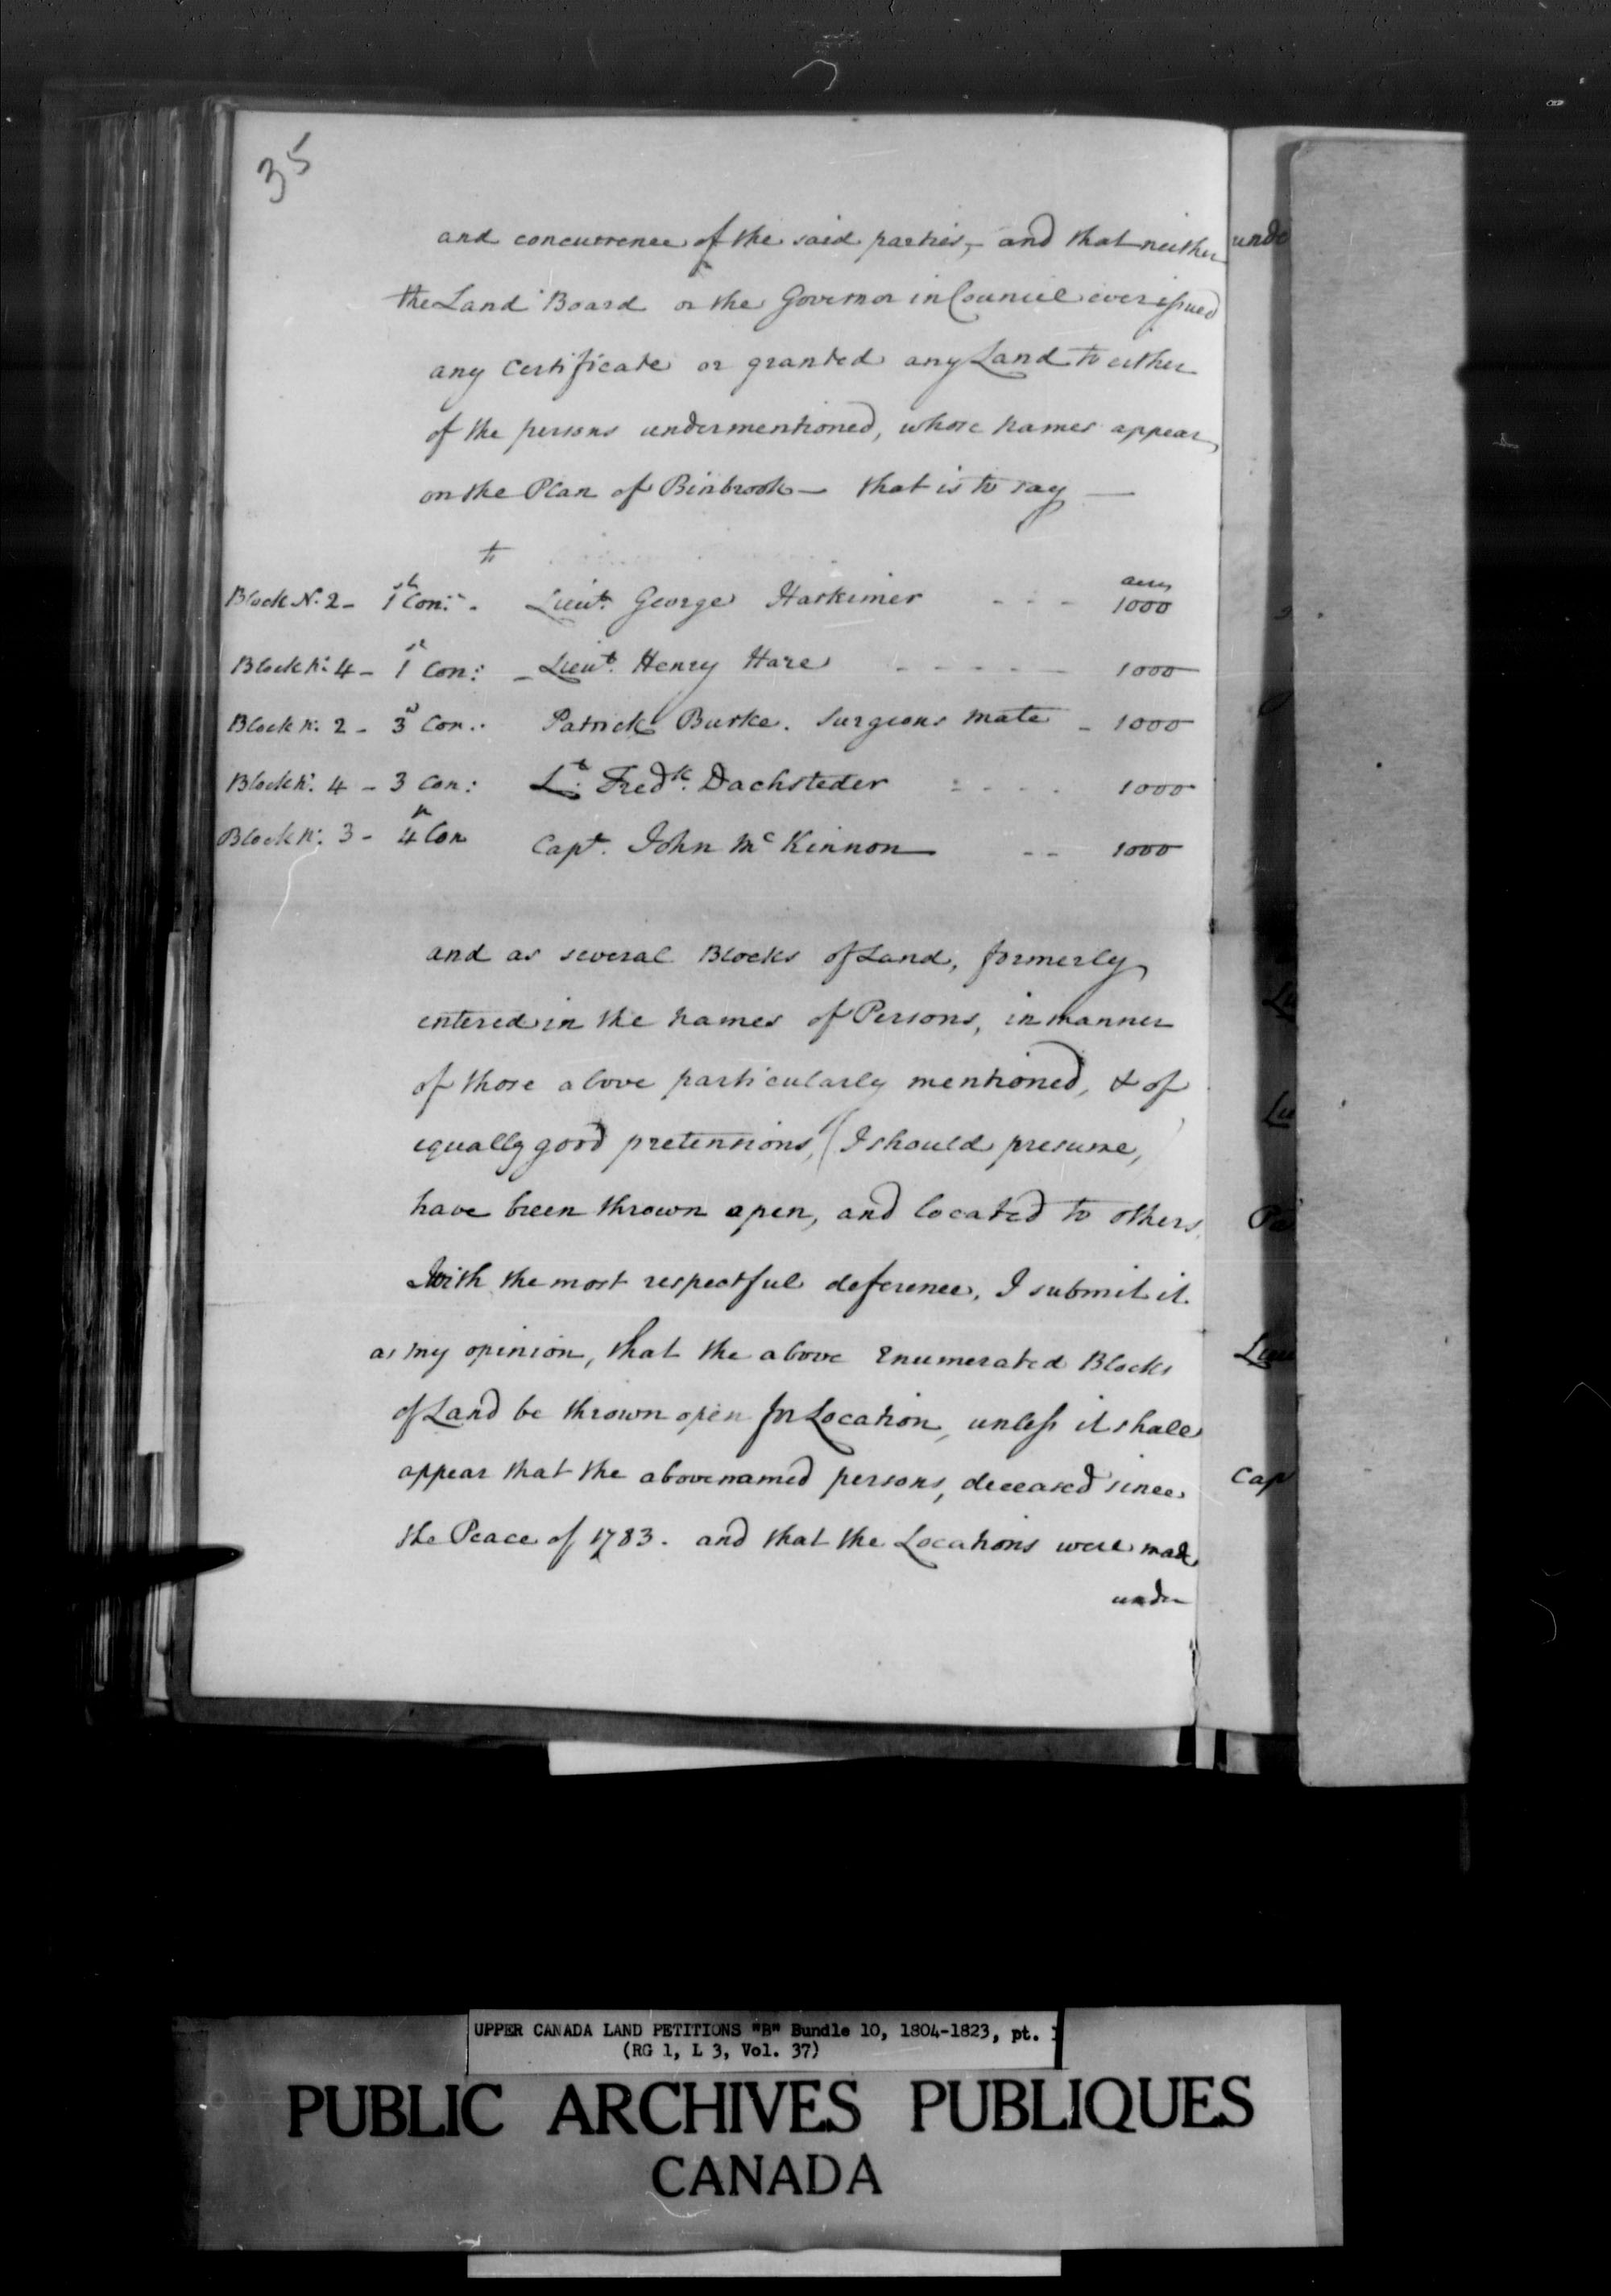 35
and concurrence of the said parties, and that neither
the Land Board or the Governor in Council ever issued
any Certificate or granted any Land to either
of the persons undermentioned, whose names appear
on the Plan of Binbrook — that is to say —
to
acres
Block N. 2 - 1st Con: - Lieut. George Harkimer - - - 1000
Block N: 4 - 1st Con: - Lieut. Henry Hare - - - - - 1000
Block N. 2 - 3d Con: Patrick Burke. Surgeons Mate - 1000
Block N: 4 - 3 Con: Lt. Fredk. Dachsteder - - - - 1000
Block N: 3 - 4th Con Capt. John McKinnon - - 1000
and as several Blocks of Land, formerly
entered in the names of Persons, in manner
of those above particularly mentioned, & of
equally good pretensions, (I should presume,)
have been thrown open, and located to others,
With the most respectful deference, I submit it
as my opinion, that the above Enumerated Blocks
of Land be thrown open for Location, unless it shall
appear that the abovenamed persons, deceased since
the Peace of 1783. and that the Locations were made
under
unde
Lu
Lie
Pa
Lieu
Cap
UPPER CANADA LAND PETITIONS "B" Bundle 10, 1804-1823, pt.
(RG 1, L 3, Vol. 37)
PUBLIC ARCHIVES PUBLIQUES
CANADA